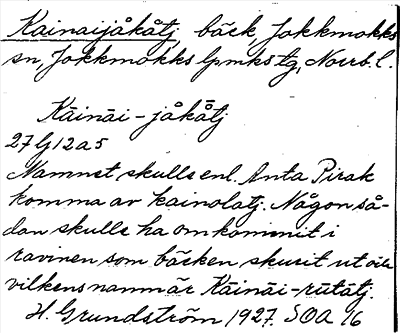 Kainaijåkåtj bäck, Jokkmokks
sn, Jokkmokks lpmkstg, Norrb. l.
Käinäi-jåkåtj
27G12a5
Namnet skulle enl. Anta Pirak
komma av kainolatj. Någon så-
dan skulle ha omkommit i
ravinen som bäcken skurit ut och
vilkens namn är Käinäi-rütåtj.
H. Grundström 1927. SOA 16